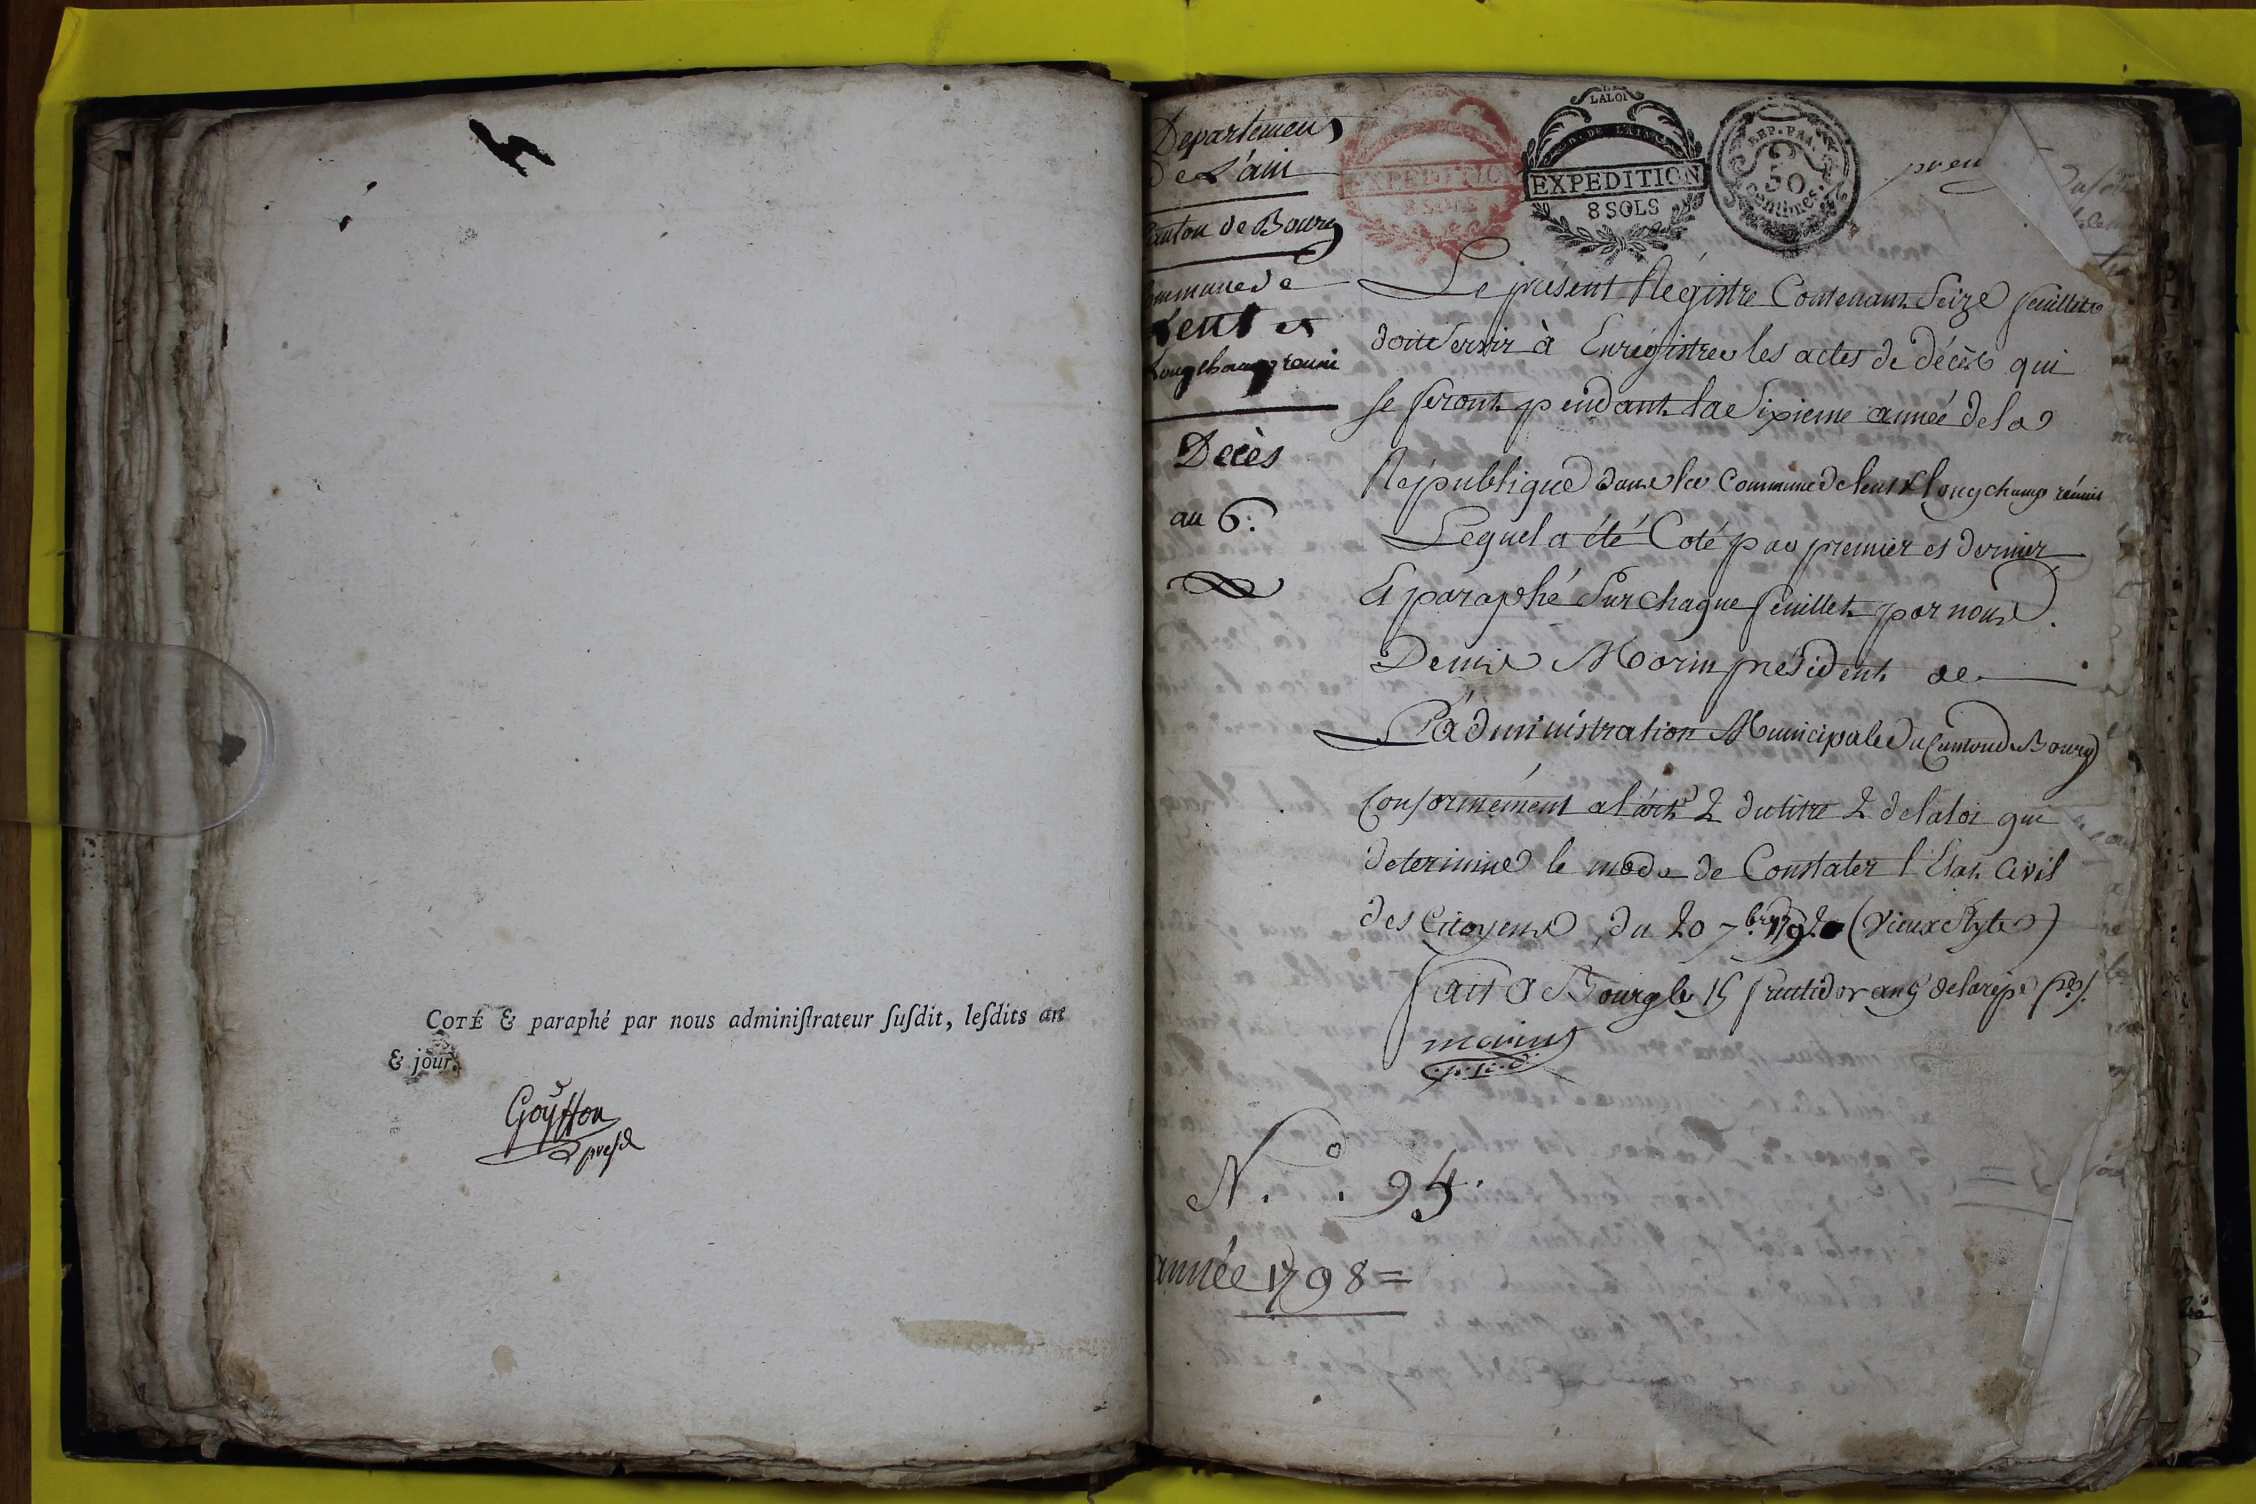 COTÉ & paraphé par nous adminiſtrateur ſuſdit, leſdits an
& jour.
Goÿffon
presd
Departement
de L'ain
Canton de Bourg
Commune de
Lent et
Longchamp reuni
Decès
an 6.
LA LOI
EXPEDITION
8 SOLS
EXPEDITION
8 SOLS
REP. FRA.
50
Centimes.
prem
Le présent Régistre Contenant Seize feuillets
doit Servir à Enrégistrer les actes de décès qui
se feront pendant la Sixieme année de la
République dans la Commune de lent & longchamp réunis
Lequel a été Coté par premier et dernier
Et paraphé Sur chaque feuillet par nous
Denis Morin président de
L'administration Municipale du Canton de Bourg
Conformément a l'art. 2 du titre 2 de la loi qui
determine le mode de Constater l'Etat Civil
des Citoyens, du 20 7.bre 1792 (Vieux Style)
fait a Bourg le 15 fructidor an 5 de la rép.
morin
p.sid.
N.o 94.
année 1798 =